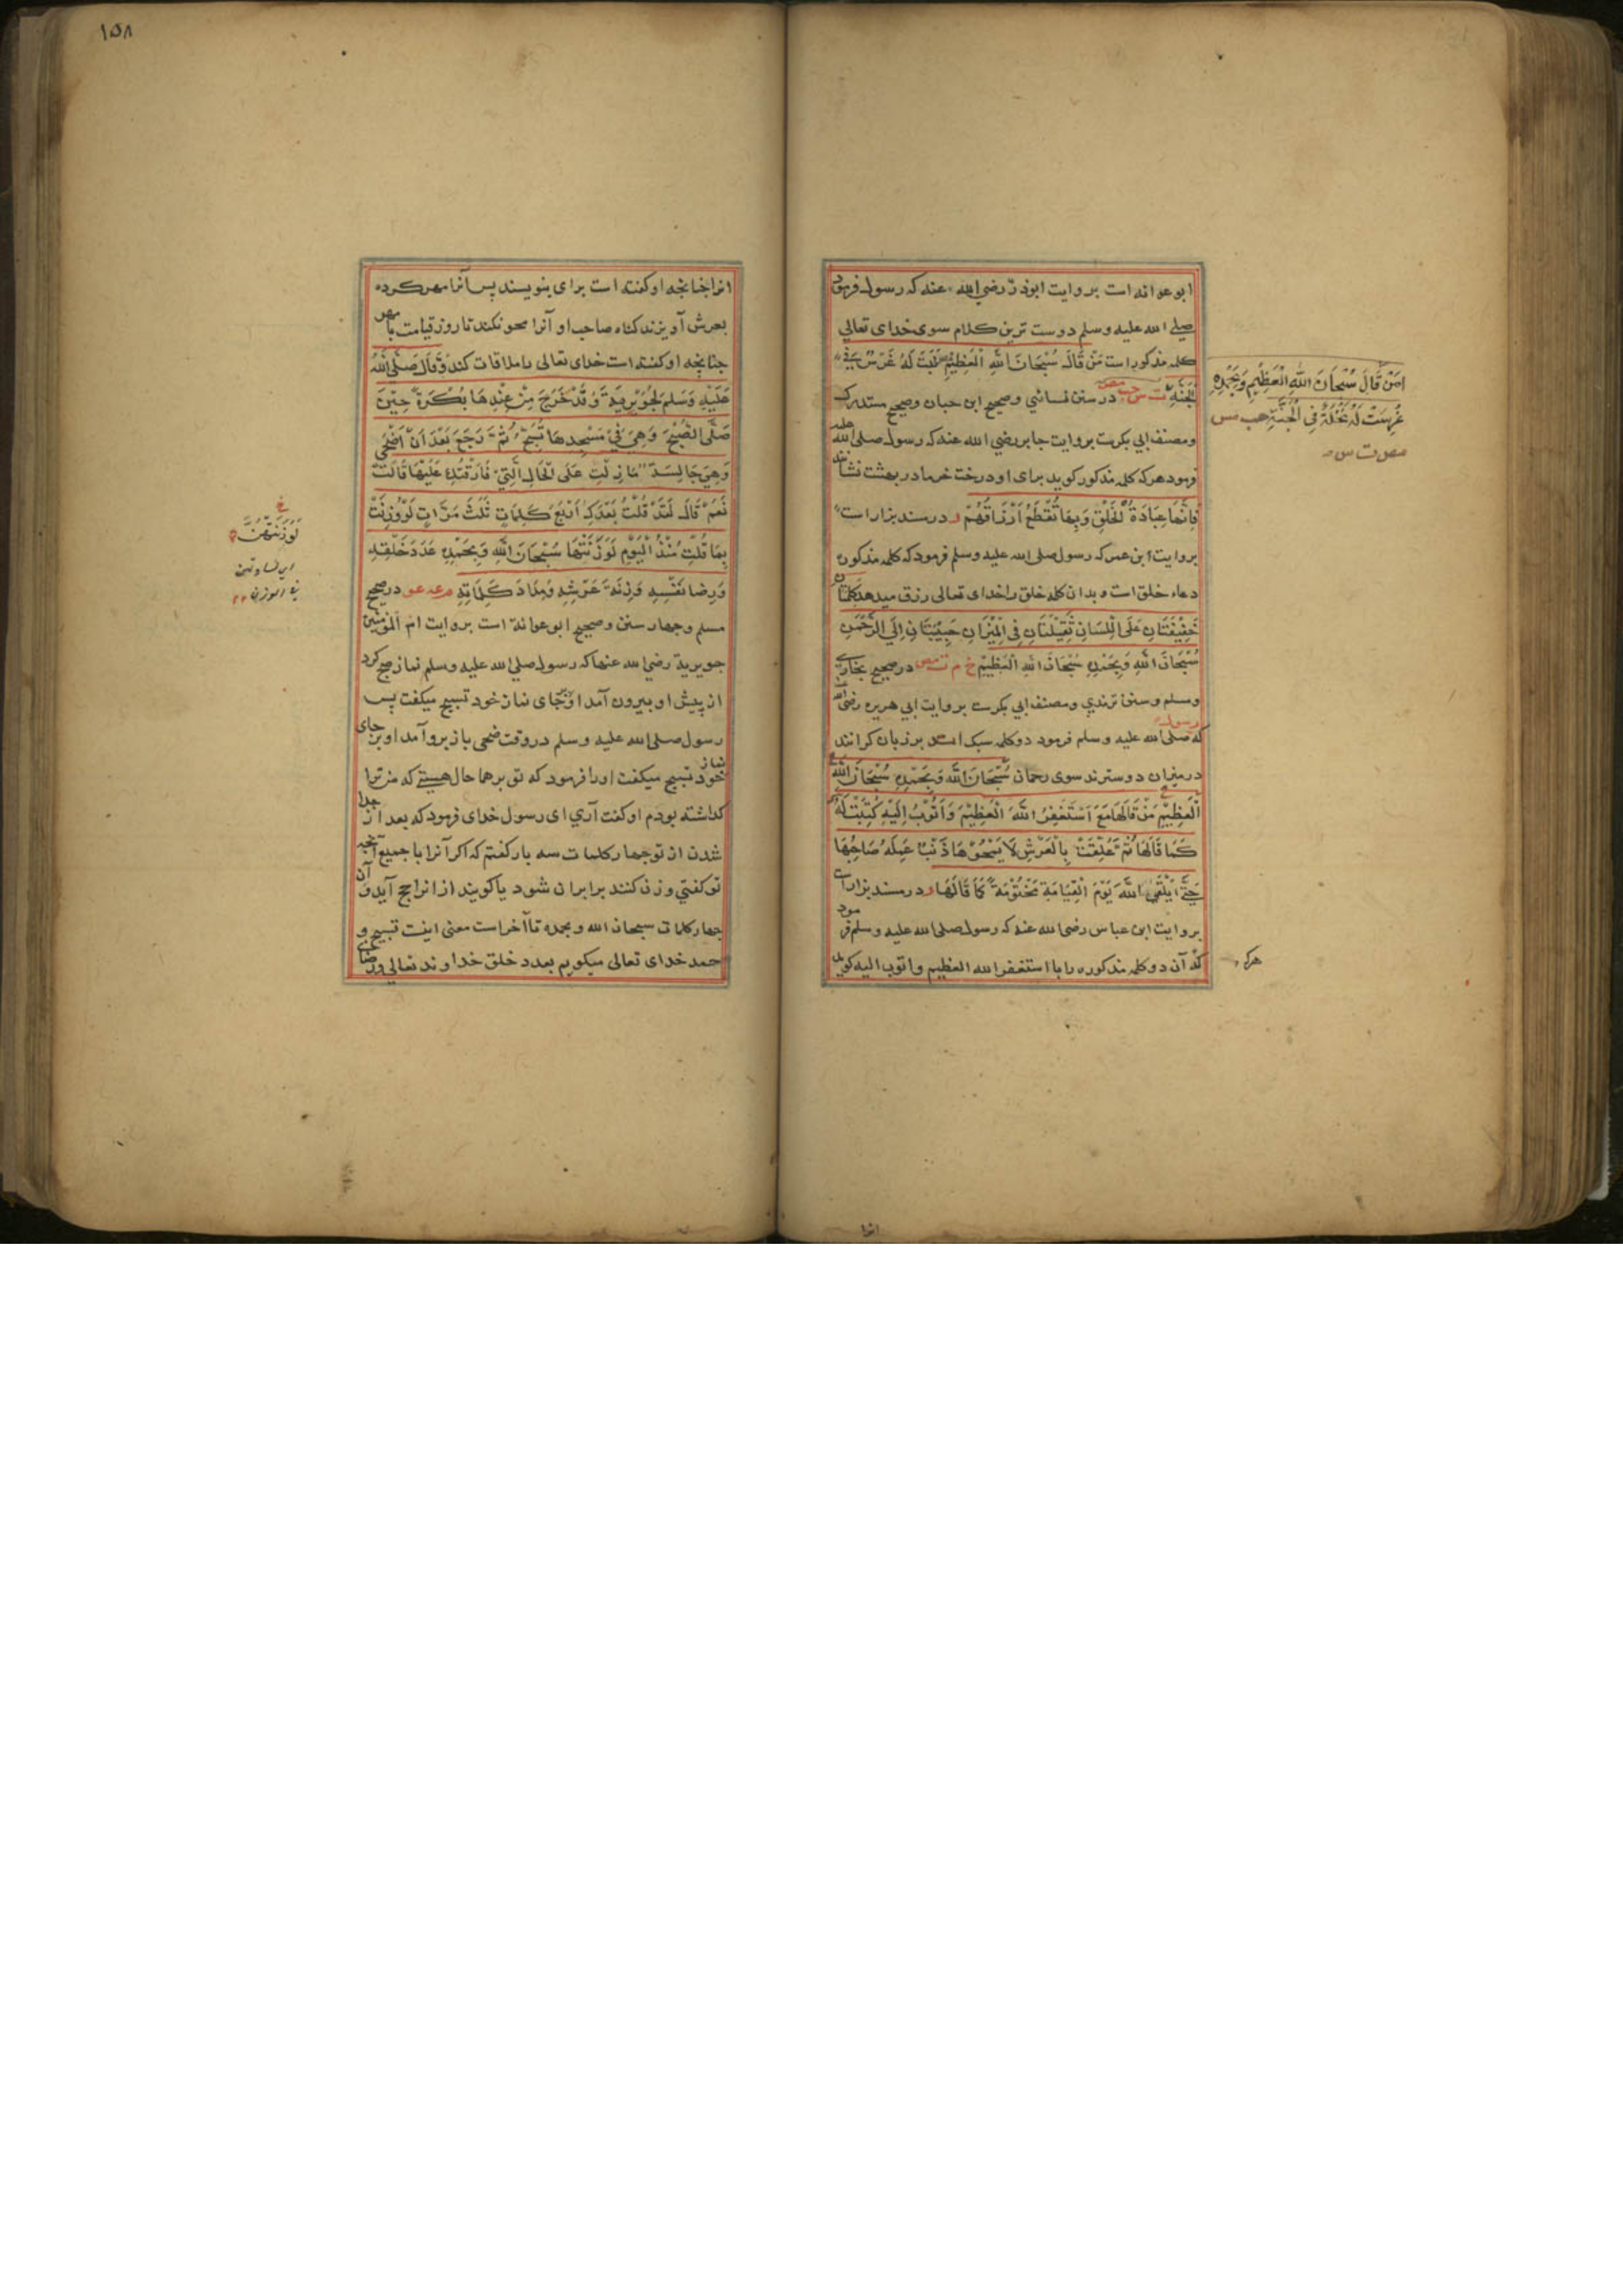 ابو عوانه است بروایت ابوذر رضي الله عنه که رسول فرمود
صلے الله علیه وسلم دوست ترین کلام سوی خدای تعالی
کلمه مذکور است مَنْ قَالَ سُبْحَانَ اللهِ الْعَظِيْمِ نَبَتَ لَهُ غَرْسٌ فِي
الْجَنَّةِ ت س حب مص در سنن نسائي وصحیح ابن حبان وصحیح مستدرک
ومصنف ابي بکرست بروایت جابر رضي الله عنه که رسول صلی الله علیه
فرمود هرکه کلمه مذکور کوید برای او درخت خرما در بهشت نشانند
فَاِنَّهَا عِبَادَةُ الْخَلْقِ وَبِهَا تُقْطَعُ اَرْزَاقُهُمْ ر در مسند بزار است
بروایت ابن عمر که رسول صلی الله علیه وسلم فرمود که کلمه مذکوره
دعاء خلق است و بدان کلمه خلق را خدای تعالی رزق میدهد كَلِمَتَانِ
خَفِيْفَتَانِ عَلَى الْلِسَانِ ثَقِيْلَتَانِ فِى الْمِيْزَانِ حَبِيْبَتَانِ اِلَى الرَّحْمٰنِ
سُبْحَانَ اللهِ وَبِحَمْدِهِ سُبْحَانَ اللهِ الْعَظِيْمِ خ م ت مص در صحیح بخاری
ومسلم وسنن ترمذي ومصنف ابي بکرست بروایت ابي هریره رضی الله
که رسول صلی الله علیه وسلم فرمود دو کلمه سبک اند بر زبان کرانند
در میزان دوسترند سوی رحمان سُبْحَانَ اللهِ وَبِحَمْدِهِ سُبْحَانَ اللهِ
الْعَظِيْمِ مَنْ قَالَهَا مَعَ اَسْتَغْفِرُ اللهَ الْعَظِيْمَ وَاَتُوْبُ اِلَيْهِ كُتِبَتْ لَهُ
كَمَا قَالَهَا ثُمَّ عُلِّقَتْ بِالْعَرْشِ لَا يَمْحُوْهَا ذَنْبٌ عَمِلَهُ صَاحِبُهَا
حَتّٰى يَلْقَى اللهَ يَوْمَ الْقِيَامَةِ مَخْتُوْمَةً كَمَا قَالَهَا ر در مسند بزار است
بروایت ابن عباس رضی الله عنه که رسول صلی الله علیه وسلم فرمود
که آن دو کلمه مذکوره را با استغفر الله العظیم واتوب الیه کوید
مَنْ قَالَ سُبْحَانَ اللهِ الْعَظِيْمِ وَبِحَمْدِهِ
غُرِسَتْ لَهُ نَخْلَةٌ فِى الْجَنَّةِ حب مس
مص ت س
هرکه
انرا
١٥٨
انرا چنانچه او کفته است برای بنویسند پس آنرا مهر کرده
بعرش آویزند کناه صاحب او آنرا محو نکند تا روز قیامت با مهر
چنانچه او کفته است خدای تعالی را ملاقات کند وَقَالَ صَلَّى اللهُ
عَلَيْهِ وَسَلَّم لِجُوَيْرِيَةَ وَقَدْ خَرَجَ مِنْ عِنْدِهَا بُكْرَةً حِيْنَ
صَلَّى الصُّبْحَ وَهِيَ فِيْ مَسْجِدِهَا تُسَبِّحُ ثُمَّ رَجَعَ بَعْدَ اَنْ اَضْحٰى
وَهِيَ جَالِسَةٌ مَا زِلْتِ عَلَى الْحَالِ الَّتِيْ فَارَقْتُكِ عَلَيْهَا قَالَتْ
نَعَمْ قَالَ لَقَدْ قُلْتُ بَعْدَكِ اَرْبَعَ كَلِمَاتٍ ثَلٰثَ مَرَّاتٍ لَوْ وُزِنَتْ
بِمَا قُلْتِ مُنْذُ الْيَوْمِ لَوَزَنَتْهَا سُبْحَانَ اللهِ وَبِحَمْدِهِ عَدَدَ خَلْقِهِ
وَرِضَا نَفْسِهِ وَزِنَةَ عَرْشِهِ وَمِدَادَ كَلِمَاتِهِ م عه عو در صحیح
مسلم وچهار سنن وصحیح ابو عوانة است بروایت ام المؤمنین
جویریة رضي الله عنها که رسول صلي الله علیه وسلم نماز صبح کرد
از پیش او بیرون آمد او بر جای نماز خود تسبیح میکفت پس
رسول صلی الله علیه وسلم در وقت ضحی باز برو آمد او بر جای نماز
خود تسبیح میکفت اورا فرمود که تو بر هما حال هستی که من ترا
کذاشته بودم او کفت آري ای رسول خدای فرمود که بعد از جدا
شدن از تو چهار کلمات سه بار کفتم که اکر آنرا با جمیع آنچه
تو کفتي وزن کنند برابر آن شود یا کویند از انراجح آید و آن
چهار کلمات سبحان الله وبحمده تا آخر است معنی اینست تسبیح و
حمد خدای تعالی میکویم بعدد خلق خداوند تعالی ورضای
لَوَزَنَتْهُنَّ